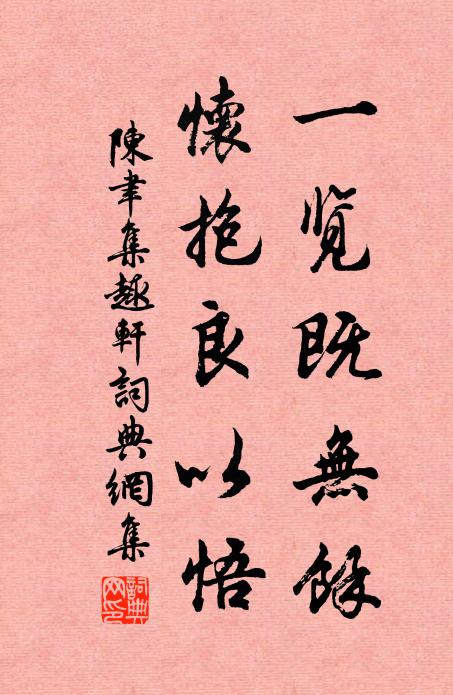 一覽既無餘
懷抱良以悟
陳聿集趣軒詞典網集
詞典網印